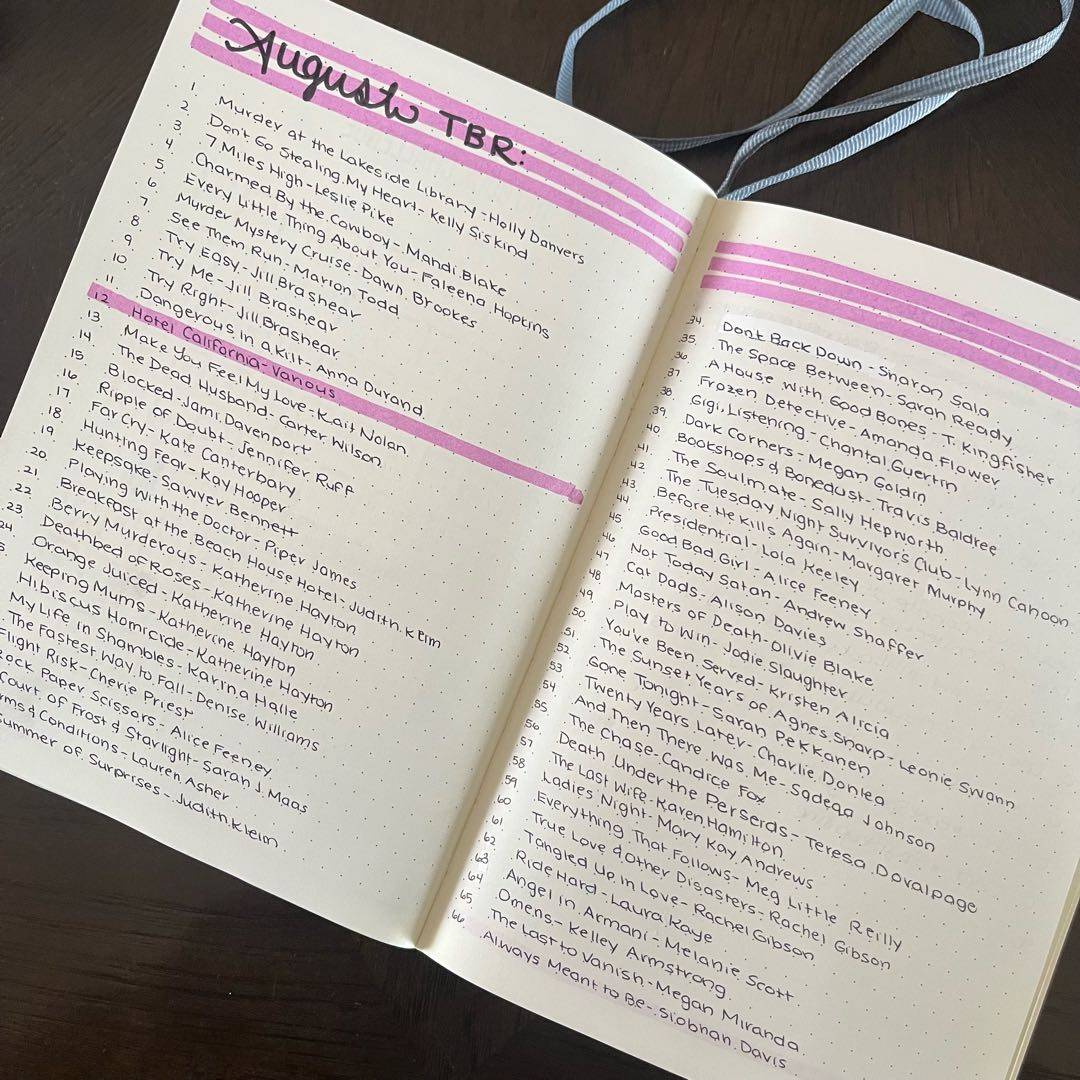 August TBR:
1 Murder at the Lakeside Library - Holly Danvers
2 Don't Go Stealing My Heart - Kelly Siskind
3 7 Miles High - Leslie Pike
4 Charmed By the Cowboy - Mandi Blake
5 Every Little Thing About You - Faleena Hopkins
6 Murder Mystery Cruise - Dawn Brookes
7 See Them Run - Marion Todd
8 Try Easy - Jill Brashear
9 Try Me - Jill Brashear
10 Try Right - Jill Brashear
11 Dangerous in a Kilt - Anna Durand
12 Hotel California - Various
13 Make You Feel My Love - Kait Nolan
14 The Dead Husband - Carter Wilson
15 Blocked - Jami Davenport
16 Ripple of Doubt - Jennifer Ruff
17 Far Cry - Kate Canterbary
18 Hunting Fear - Kay Hooper
19 Keepsake - Sawyer Bennett
20 Playing with the Doctor - Piper James
21 Breakfast at the Beach House Hotel - Judith Kleim
22 Berry Murderous - Katherine Hayton
23 Deathbed of Roses - Katherine Hayton
24 Orange Juiced - Katherine Hayton
Keeping Mums - Katherine Hayton
Hibiscus Homicide - Katherine Hayton
My Life in Shambles - Karina Halle
The Fastest Way to Fall - Denise Williams
Flight Risk - Cherie Priest
Rock Paper Scissors - Alice Feeney
Court of Frost & Starlight - Sarah J. Maas
& Conditions - Lauren Asher
Summer of Surprises - Judith Kleim
34. Don't Back Down - Sharon Sala
35. The Space Between - Sarah Ready
36. A House With Good Bones - T. Kingfisher
37 Frozen Detective - Amanda Flower
38. Gigi, Listening - Chantal Guertin
39. Dark Corners - Megan Goldin
40. Bookshops & Bonedust - Travis Baldree
41. The Soulmate - Sally Hepworth
42. The Tuesday Night Survivor's Club - Lynn Cahoon
43. Before He Kills Again - Margaret Murphy
44. Presidential - Lola Keeley
45. Good Bad Girl - Alice Feeney
46 Not Today Satan - Andrew Shaffer
47. Cat Dads - Alison Davies
48. Masters of Death - Olivie Blake
49. Play to Win - Jodie Slaughter
50. You've Been Served - Kristen Alicia
51. The Sunset Years of Agnes Sharp - Leonie Swann
52. Gone Tonight - Sarah Pekkanen
53. Twenty Years Later - Charlie Donlea
54. And Then There Was Me - Sadeqa Johnson
55. The Chase - Candice Fox
56. Death Under the Perseids - Teresa Dovalpage
57. The Last Wife - Karen Hamilton
58. Ladies' Night - Mary Kay Andrews
59. Everything That Follows - Meg Little Reilly
60. True Love & Other Disasters - Rachel Gibson
61. Tangled Up in Love - Rachel Gibson
62. Ride Hard - Laura Kaye
63. Angel in Armani - Melanie Scott
64. Omens - Kelley Armstrong
65. The Last to Vanish - Megan Miranda
66. Always Meant to Be - Siobhan Davis